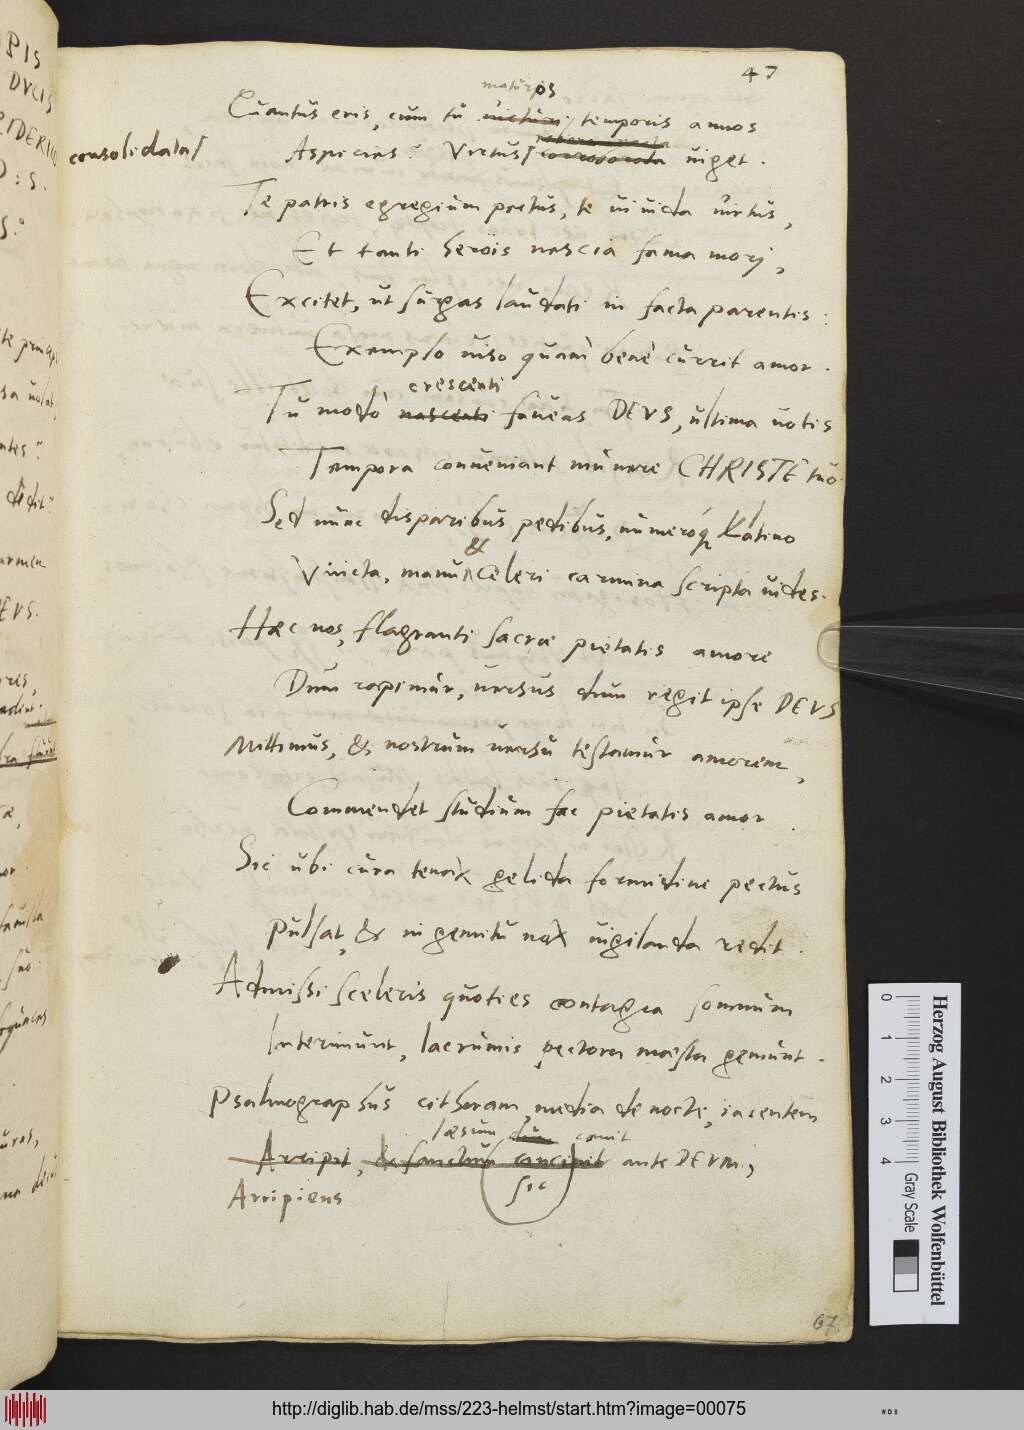 47
maturos
Quantus eris, cum tu victuri temporis annos
consolidata
Aspicias? Virtus corroborata viget.
Te patris egregium pectus, te vivida virtus,
Et tanti heröis nescia fama mori,
Excitet, ut surgas laudati in facta parentis:
Exemplo viso quam benè currit amor.
crescenti
Tu modò nascenti faveas DEVS, ultima votis
Tempora conveniant munere CHRISTE tuo.
Sed nunc disparibus pedibus, numeróq Latino
&
Vincta, manu celeri carmina scripta vides.
Haec nos, flagranti sacrae pietatis amore
Dum rapimur, versus dum regit ipse DEVS
Mittimus, & nostrum versu testamur amorem,
Commendet studium fac pietatis amor.
Sic ubi cura tenax gelida formidine pectus
Pulsat, & in gemitu nox vigilanda redit.
Admissi sceleris quoties contagia somnum
Interimunt, lacrumis pectora maesta gemunt.
Psalmographus citharam media de nocte, iacentem
laesum dum canit
Arripit, & sanctum concinit ante DEVM,
sic
Arripiens
67.
PIS
DVCIS
Herzog August Bibliothek Wolfenbüttel
Gray Scale
0 1 2 3 4
http://diglib.hab.de/mss/223-helmst/start.htm?image=00075